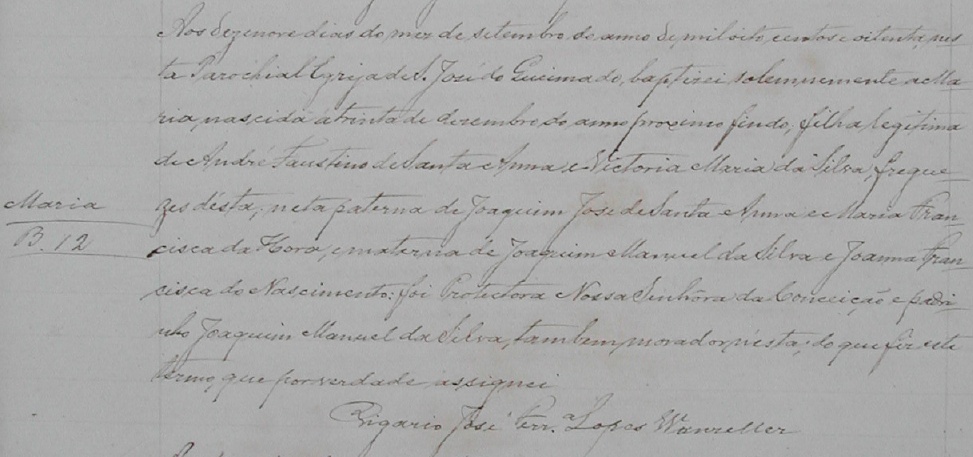 Aos dezenove dias do mez de setembro do anno de mil oito centos e oitenta, nes-
ta Parochial Egrija de S. José do Queimado, baptizei solemnemente a Ma-
ria, nascida á trinta de dezembro do anno proximo findo, filha legitima
de André Faustino de Santa Anna e Victoria Maria da Silva, fregue-
Maria
zes désta; neta paterna de Joaquim José de Santa Anna e Maria Fran-
B. 12
cisca da Hora, e materna de Joaquim Manuel da Silva e Joanna Fran-
cisca do Nascimento: foi Protectora Nossa Senhôra da Conceição e padri-
nho Joaquim Manuel da Silva, tambem morador nésta; do que fiz este
termo, que por verdade assignei
Vigario José Ferr.ª Lopes Wanzeller